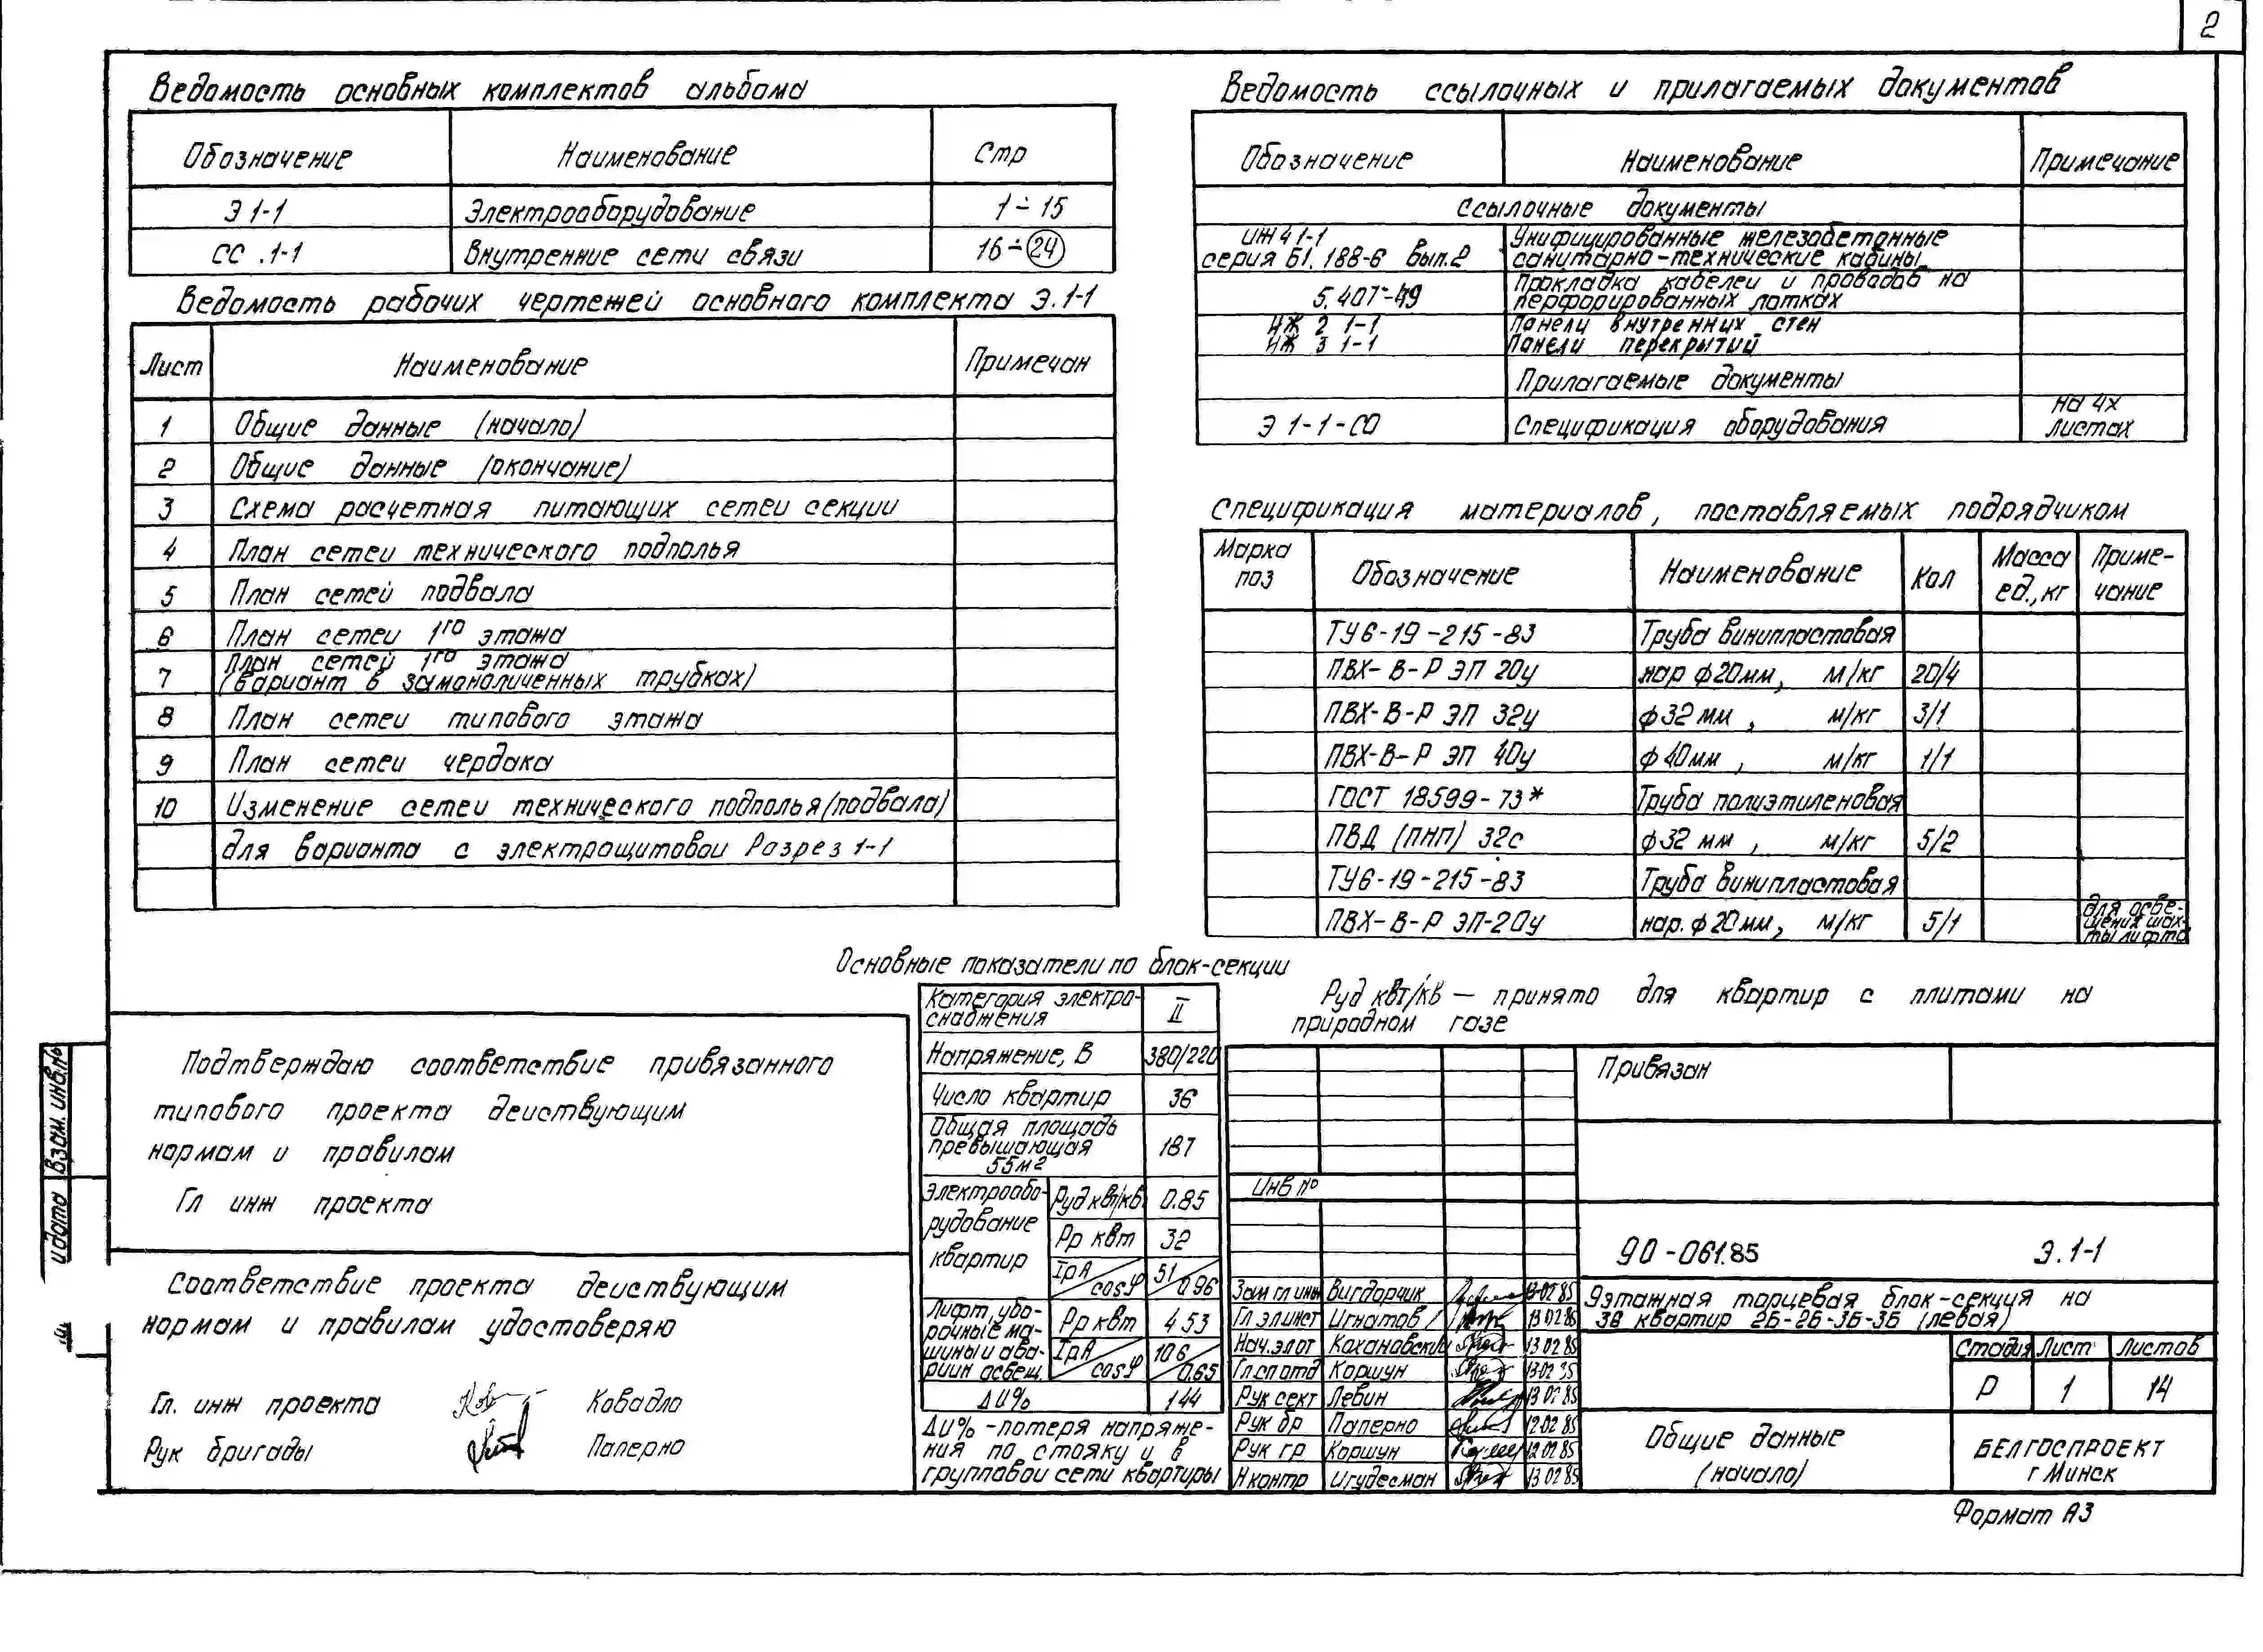 2
Ведомость основных комплектов альбома
Обозначение Наименование Стр
Э 1-1 Электрооборудование 1÷15
СС .1-1 Внутренние сети связи 16÷24
Ведомость рабочих чертежей основного комплекта Э.1-1
Лист Наименование Примечан
1 Общие данные (начало)
2 Общие данные (окончание)
3 Схема расчетная питающих сетей секции
4 План сетей технического подполья
5 План сетей подвала
6 План сетей 1го этажа
7 План сетей 1го этажа
(вариант в замоноличенных трубках)
8 План сетей типового этажа
9 План сетей чердака
10 Изменение сетей технического подполья (подвала)
для варианта с электрощитовой Разрез 1-1
Ведомость ссылочных и прилагаемых документов
Обозначение Наименование Примечание
Ссылочные документы
ИЖ4 1-1 Унифицированные железобетонные
серия Б1.188-6 вып.2 санитарно-технические кабины
Прокладка кабелей и проводов на
5.407-49 перфорированных лотках
ИЖ 2 1-1 Панели внутренних стен
ИЖ 3 1-1 Панели перекрытий
Прилагаемые документы
Э 1-1-СО Спецификация оборудования на 4х
листах
Спецификация материалов, поставляемых подрядчиком
Марка поз Обозначение Наименование Кол Масса ед.,кг Приме-чание
ТУ6-19-215-83 Труба винипластовая
ПВХ-В-Р ЭП 20у нар ф20мм, м/кг 20/4
ПВХ-В-Р ЭП 32у ф32 мм, м/кг 3/1
ПВХ-В-Р ЭП 40у ф40мм, м/кг 1/1
ГОСТ 18599-73* Труба полиэтиленовая
ПВД (ПНП) 32с ф32 мм, м/кг 5/2
ТУ6-19-215-83 Труба винипластовая
ПВХ-В-Р ЭП-20у нар. ф20мм, м/кг 5/1 для осве-
щения шах-
ты лифта
Основные показатели по блок-секции
Категория электро-
снабжения II
Напряжение, В 380/220
Число квартир 36
Общая площадь
превышающая 187
55м2
Электрообо-
рудование
квартир
Руд квт/кв 0.85
Рр квт 32
IрА/cosφ 51/0.96
Лифт, убо-
рочные ма-
шины и ава-
рийн освещ.
Рр квт 4 53
IрА/cosφ 10 6/0.65
ΔU% 1 44
ΔU% -потеря напряже-
ния по стояку и в
групповой сети квартиры
Руд квт/кв — принято для квартир с плитами на
природном газе
Подтверждаю соответствие привязанного
типового проекта действующим
нормам и правилам
Гл инж проекта
Соответствие проекта действующим
нормам и правилам удостоверяю
Гл. инж проекта Ковадло
Рук бригады Паперно
Взам. инв.№
и дата
Привязан
Инв №
90-061.85 Э.1-1
Зам гл инж Вигдорчик 13.02 85
Гл эл инст Игнатов 13 02 85
Нач.эл от Кохановский 13 02 85
Гл сп отд Коршун 13 02 85
Рук сект Левин 13 02 85
Рук бр Паперно 12 02 85
Рук гр Коршун 12.02 85
Н контр Игудесман 13 02 85
9этажная торцевая блок-секция на
36 квартир 2Б-2Б-3Б-3Б (левая)
Стадия Лист Листов
Р 1 14
Общие данные
(начало)
БЕЛГОСПРОЕКТ
г Минск
Формат А3